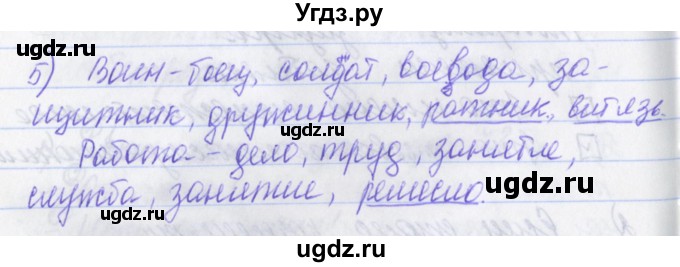 Угдз.ру
gdz.ru
5) Воин - боец, солдат, воевода, за-
gdz.ru
uwgdz.ru
щитник, дружинник, ратник, витязь.
gdz.ru
Работа - дело, труд, занятие,
gdz.ru
служба, занятие, ремесло.
uwgdz.ru
uwgdz.ru